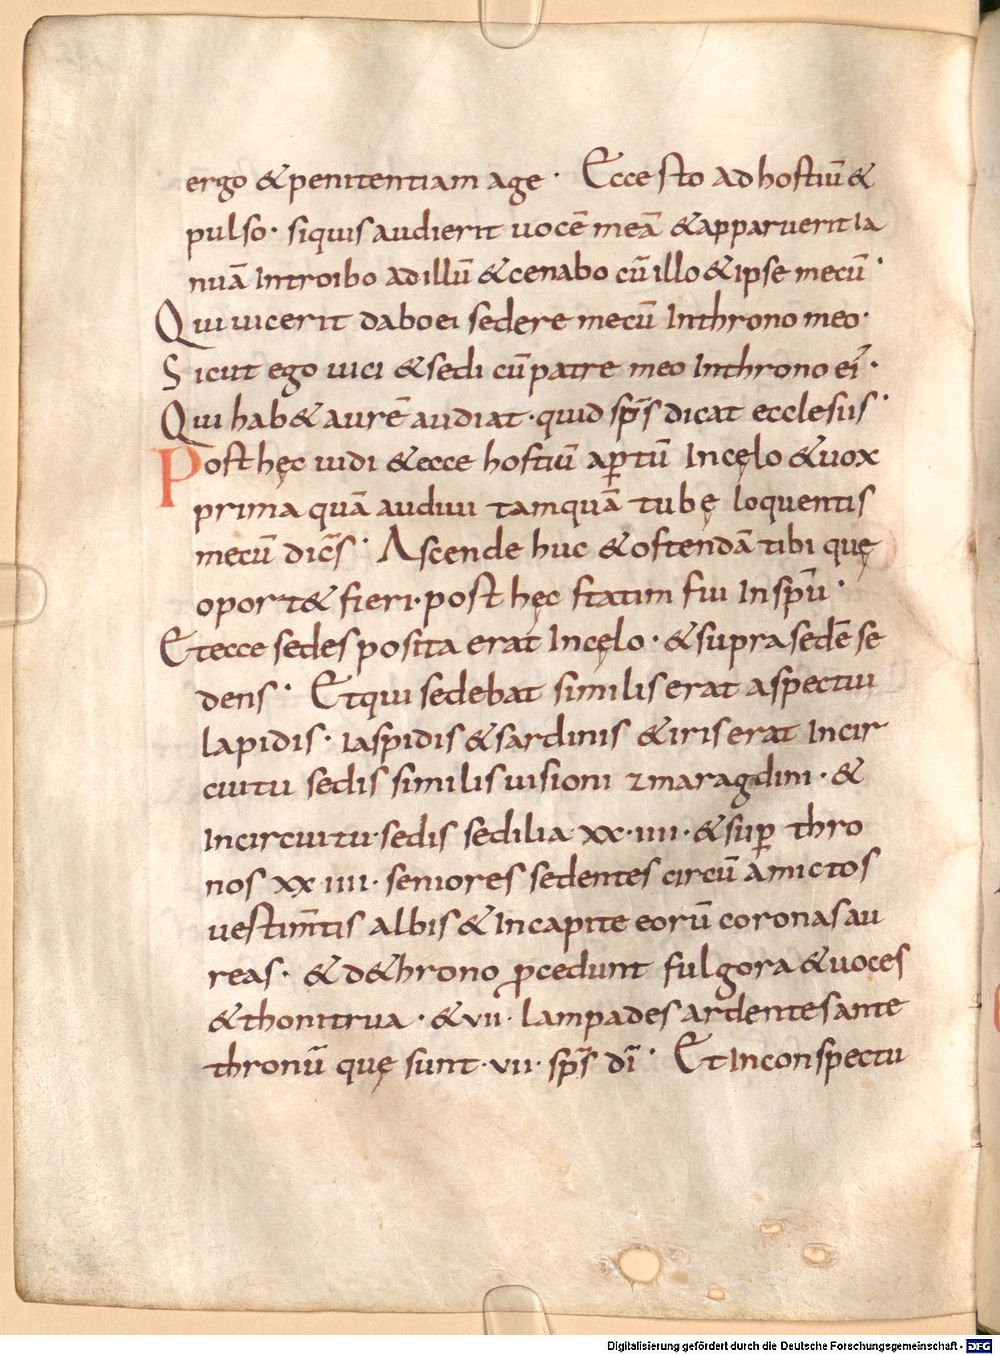 ergo & penitentiam age · Ecce sto ad hostiū &
pulso · siquis audierit uocē meā & apparuerit ia
nuā Introibo ad illū & cenabo cū illo & ipse mecū ·
Qui uicerit dabo ei sedere mecū Inthrono meo ·
Sicut ego uici & sedi cū patre meo Inthrono ei ·
Qui hab& aurē audiat · quid sp̄s dicat ecclesiis ·
Post hęc uidi & ecce hostiū ap̱tū Incęlo & uox
prima quā audiui tamquā tubę loquentis
mecū dic̄s · Ascende huc & ostendā tibi quę
oport& fieri · post hęc statim fui Insp̄u ·
Et ecce sedes posita erat Incęlo · & supra sedē se
dens · Et qui sedebat similis erat aspectui
lapidis · iaspidis & sardinis & iris erat Incir
cuitu sedis similis uisioni zmaragdini · &
Incircuitu · sedis sedilia xx · iiii · & sup̱ thro
nos xx · iiii · seniores sedentes circū amictos
uestim̄tis albis & Incapite eorū coronas au
reas · & de throno ꝓcedunt fulgora & uoces
& thonitrua · & vii · lampades ardentes ante
thronū quę sunt · vii · sp̄s dī · Et Inconspectu
Digitalisierung gefördert durch die Deutsche Forschungsgemeinschaft - DFG